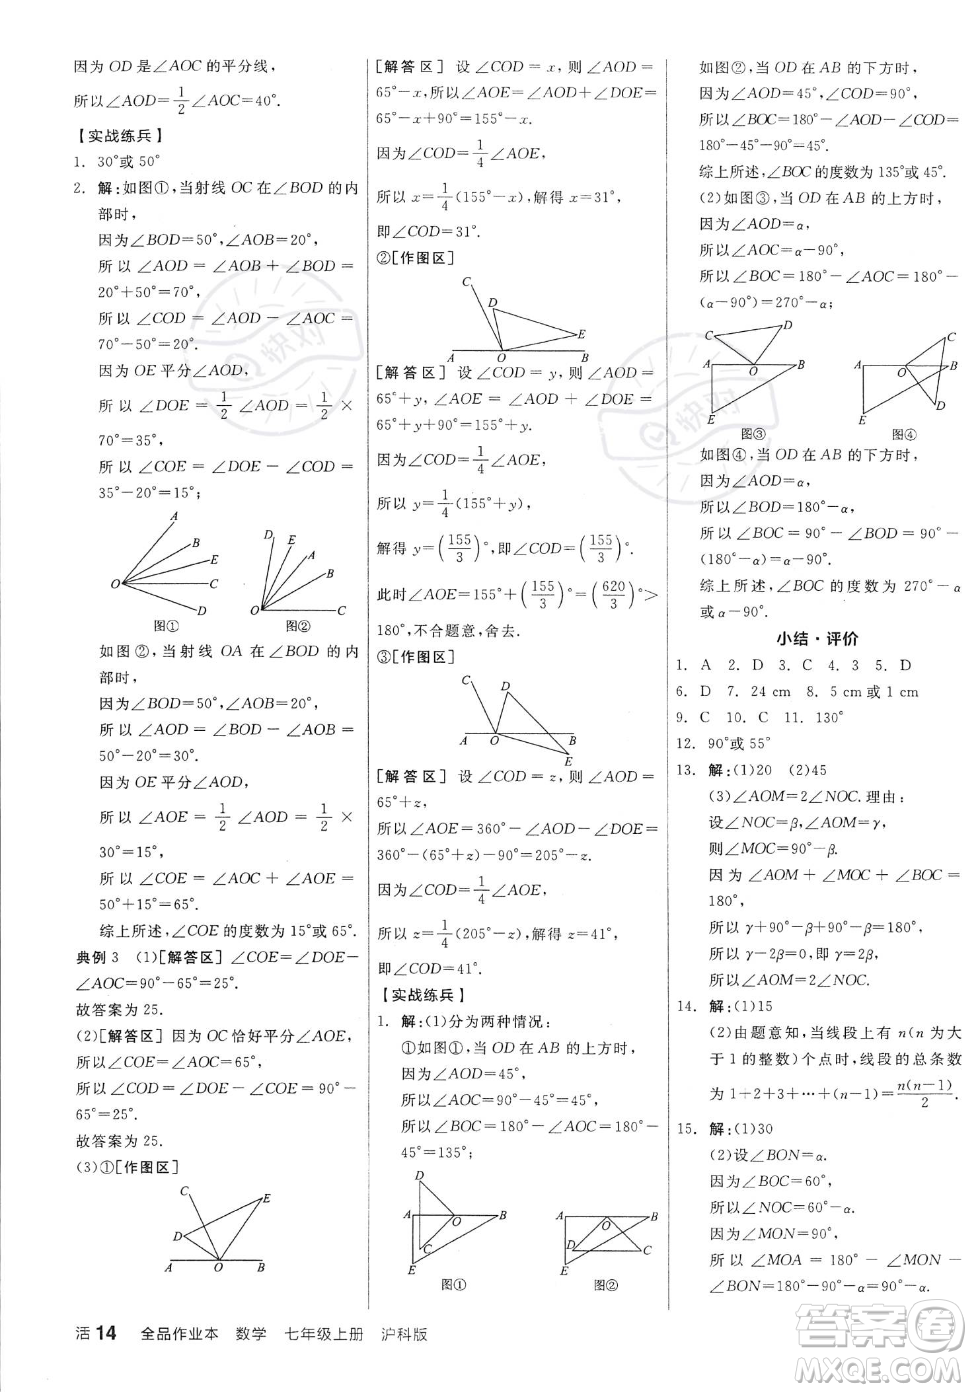 因为 OD 是∠AOC 的平分线,
所以∠AOD=1/2∠AOC=40°.
【实战练兵】
1. 30°或 50°
2. 解:如图①,当射线 OC 在∠BOD 的内
部时,
因为∠BOD=50°,∠AOB=20°,
所以∠AOD=∠AOB+∠BOD=
20°+50°=70°,
所以∠COD=∠AOD-∠AOC=
70°-20°=50°.
因为 OE 平分∠AOD,
所以∠DOE=1/2∠AOD=1/2×
70°=35°,
所以∠COE=∠DOE-∠COD=
35°-20°=15°;
A
B
E
O
C
D
图①
D
E
A
B
O
C
图②
如图②,当射线 OA 在∠BOD 的内
部时,
因为∠BOD=50°,∠AOB=20°,
所以∠AOD=∠BOD-∠AOB=
50°-20°=30°.
因为 OE 平分∠AOD,
所以∠AOE=1/2∠AOD=1/2×
30°=15°,
所以∠COE=∠AOC+∠AOE=
50°+15°=65°.
综上所述,∠COE 的度数为 15°或 65°.
典例 3 (1)[解答区]∠COE=∠DOE-
∠AOC=90°-65°=25°.
故答案为 25.
(2)[解答区] 因为 OC 恰好平分∠AOE,
所以∠AOC=∠COE=65°,
所以∠COD=∠DOE-∠COE=90°-
65°=25°.
故答案为 25.
(3)①[作图区]
C
E
D
A
O
B
[解答区] 设∠COD=x,则∠AOD=
65°-x,∠AOE=∠AOD+∠DOE=
65°-x+90°=155°-x.
因为∠COD=1/4∠AOE,
所以 x=1/4(155°-x),解得 x=31°,
即∠COD=31°.
②[作图区]
C
D
E
A
O
B
[解答区] 设∠COD=y,则∠AOD=
65°+y,∠AOE=∠AOD+∠DOE=
65°+y+90°=155°+y.
因为∠COD=1/4∠AOE,
所以 y=1/4(155°+y),
解得 y=(155/3)°,即∠COD=(155/3)°.
此时∠AOE=155°+(155/3)°=(620/3)°>
180°,不合题意,舍去.
③[作图区]
C
D
A
O
B
E
[解答区] 设∠COD=z,则∠AOD=
65°+z,
所以∠AOE=360°-∠AOD-∠DOE=
360°-(65°+z)-90°=205°-z.
因为∠COD=1/4∠AOE,
所以 z=1/4(205°-z),解得 z=41°,
即∠COD=41°.
【实战练兵】
1. 解:(1)分为两种情况:
①如图①,当 OD 在 AB 的上方时,
因为∠AOD=45°,∠COD=90°,
所以∠AOC=90°-45°=45°,
所以∠BOC=180°-∠AOC=180°-
45°=135°;
D
A
O
B
C
E
图①
A
O
B
D
C
E
图②
如图②,当 OD 在 AB 的下方时,
因为∠AOD=45°,∠COD=90°,
所以∠BOC=180°-∠AOD-∠COD=
180°-45°-90°=45°.
综上所述,∠BOC 的度数为 135°或 45°.
(2)如图③,当 OD 在 AB 的上方时,
因为∠AOD=α,
所以∠AOC=α-90°,
所以∠BOC=180°-∠AOC=180°-
(α-90°)=270°-α;
D
C
A
O
B
E
图③
A
O
B
E
图④
如图④,当 OD 在 AB 的下方时,
因为∠AOD=α,
所以∠BOD=180°-α,
所以∠BOC=90°-∠BOD=90°-
(180°-α)=α-90°.
综上所述,∠BOC 的度数为 270°-α
或 α-90°.
小结·评价
1. A 2. D 3. C 4. 3 5. D
6. D 7. 24 cm 8. 5 cm 或 1 cm
9. C 10. C 11. 130°
12. 90°或 55°
13. 解:(1)20 (2)45
(3)∠AOM=2∠NOC.理由:
设∠NOC=β,∠AOM=γ,
则∠MOC=90°-β.
因为∠AOM+∠MOC+∠BOC=
180°,
所以 γ+90°-β+90°-β=180°,
所以 γ-2β=0,所以 γ=2β,
所以∠AOM=2∠NOC.
14. 解:(1)15
(2)由题意知,当线段上有 n(n 为大
于 1 的整数)个点时,线段的总条数
为 1+2+3+…+(n-1)=n(n-1)/2.
15. 解:(1)30
(2)设∠BON=α.
因为∠BOC=60°,
所以∠NOC=60°-α.
因为∠MON=90°,
所以∠MOA=180°-∠MON-
∠BON=180°-90°-α=90°-α.
活 14 全品作业本 数学 七年级上册 沪科版
快对
快对
答案圈
MXQE.COM